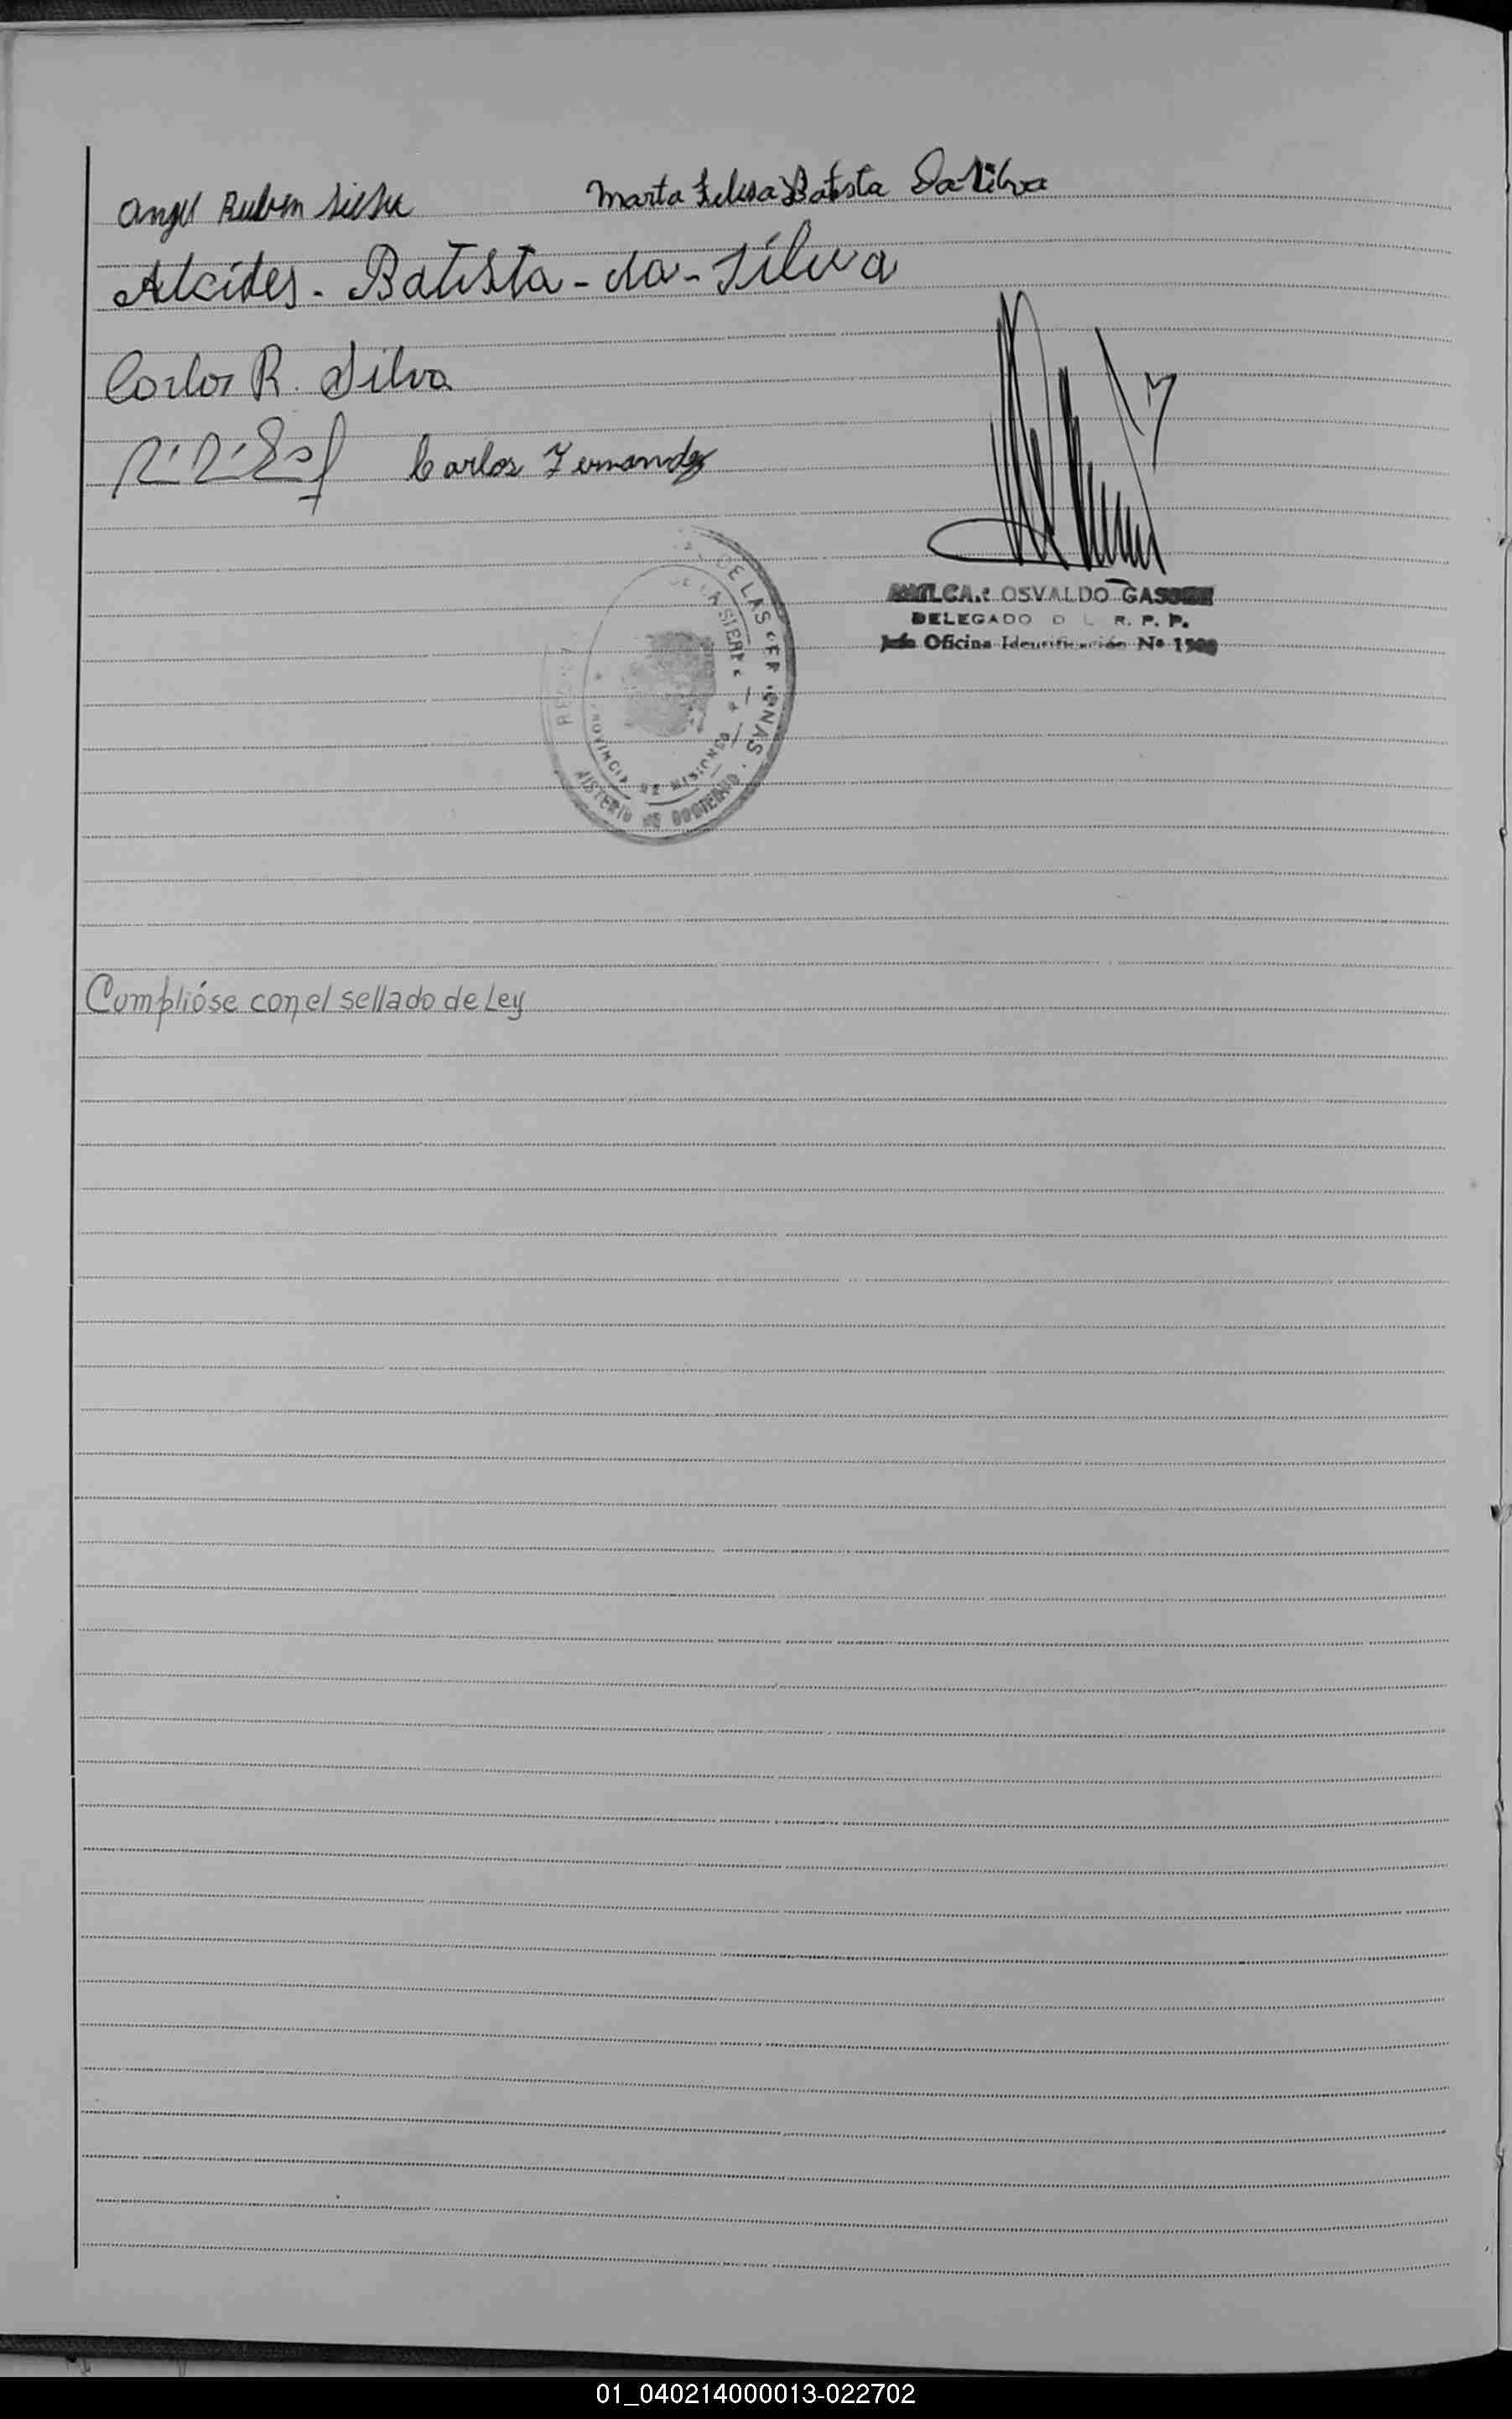 Angel Ruben Silva Marta Felisa Batista Da Silva
Alcides - Batista - da - Silva
Carlos R. Silva
Carlos Fernandez
OSVALDO
DELEGADO D L R. P. P.
Jefe Oficina Identificación Nº
DE LAS PERSONAS
PROVINCIA DE MISIONES
MINISTERIO DE GOBIERNO
Cumplióse con el sellado de Ley
01_040214000013-022702